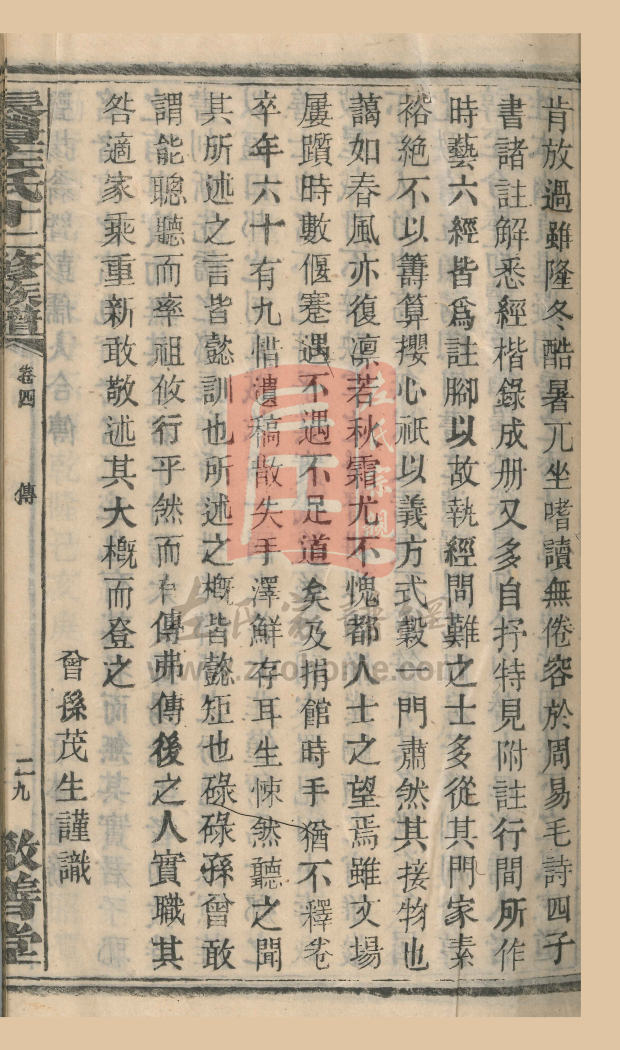 肯放過雖隆冬酷暑兀坐嗜讀無倦容於周易毛詩四子
書諸註解悉經楷錄成册又多自抒特見附註行間所作
時藝六經皆爲註腳以故執經問難之士多從其門家素
裕絶不以籌算攖心祇以義方式穀 門肅然其接物也
藹如春風亦復凛若秋霜尤不愧都人士之望焉雖文場
屢躓時數偃蹇遇不遇不足道矣及捐館時手猶不釋卷
卒年六十有九惜遺稿散失手澤鮮存耳生悚然聽之聞
其所述之言皆懿訓也所述之槪皆懿矩也碌碌孫曾敢
謂能聰聽而率祖攸行乎然而 傳弗傳後之人實職其
咎適家乘重新敢敬述其大槪而登之
曾孫茂生謹識
左氏十二修族譜
卷四
傳
二九
敦善堂
左氏家譜網
www.zuohome.com